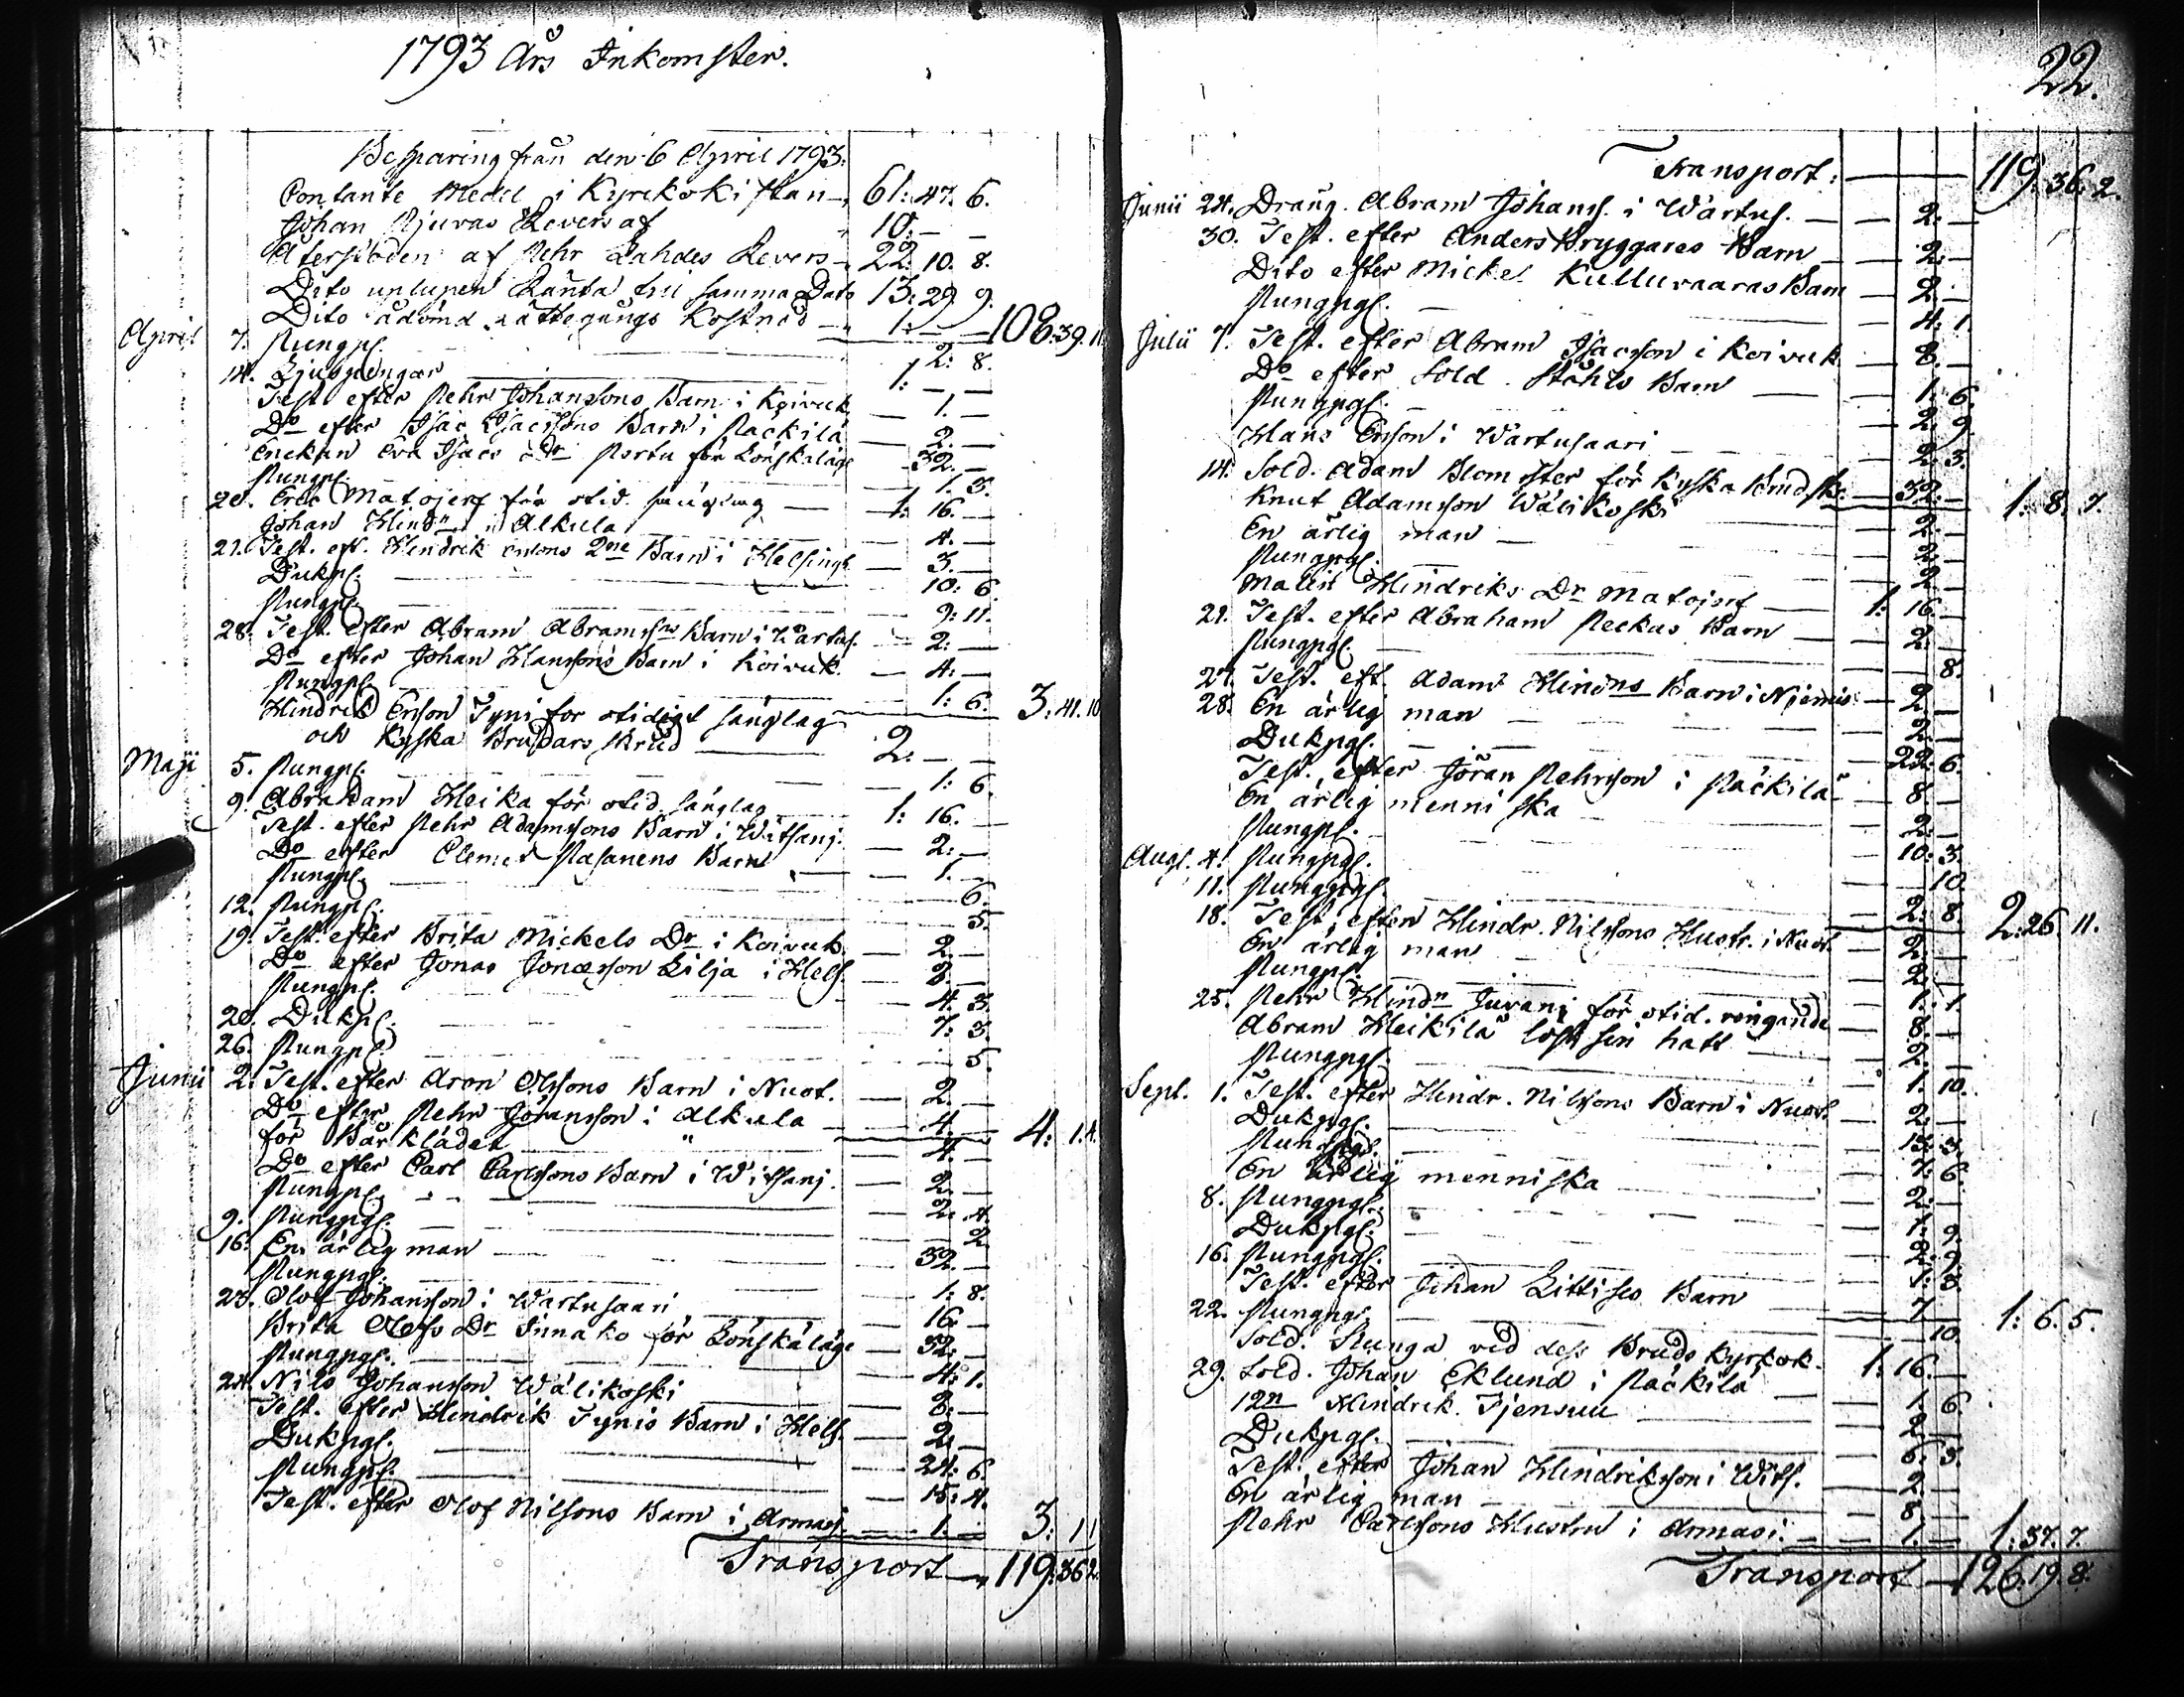 1793 Års Inkomster.
Besparing från den 6 April 1793.
Contante Medel i Kyrkokistan 61: 47. 6.
Johan Revers af 10. — —
Återstoden af Pehr Lahdes Revers 22. 10. 8.
Dito uplupen Ränta till samma Dato 13. 29. 9.
Dito ådömd rättegångs Kostnad 1: — — 108: 39. 11
April 7. Pungp. — 2: 8.
14. Ljuspengar 1: — —
Test. efter Pehr Johanssons Barn i Koivuk. — 1. —
Do efter Isac Isacssons Barn i Räckilä — 2. —
Enckan Eva Isacs Dr Portu för Lönskaläge — 32. —
Pungp. 1. 3.
20. Eric Matojerf för otid. sänglag — 1: 16. —
Johan Hindn i Alkula — 4. —
21. Test. eft. Hindrik Ersons 2ne Barn i Helsingb. — 3. —
Dukp. — 10: 6.
Pungp. — 9: 11.
28. Test. efter Abram Abramsns Barn i Wärtus. — 2: —
Do efter Johan Hanssons Barn i Koivuk. — 4: —
Pungp. — 1: 6. 3: 41. 10
Hindrik Erson Tyni för otidigt sänglag
och Kyska Brudars skrud — 2. — —
Maji 5. Pungp. — 1: 6.
9. Abraham Heika för otid. sänglag 1: 16. —
Test. efter Pehr Adamssons Barn i Witsanj. — 2: —
Do efter Clemet Pasanens Barn — 1. —
Pungp. — 6.
12. Pungp. — 5.
19. Test. efter Brita Mickels Dr i Koivuk. — 2. —
Do efter Jonas Jonasson Lilja i Hels. — 8. —
Pungp. — 4. 3.
20. Dukp. — 7: 3.
26. Pungp. — 5.
Junii 2. Test. efter Aron Olssons Barn i Nuot. — 2. —
Do efter Pehr Johansson i Alkula — 4. — 4: 1. 4.
för Bårklädet — " — 4. —
Do efter Carl Carlssons Barn i Witsanj. — 2. —
Pungp. — 2. 4.
9. Pungpgr. — 2.
16. En ärlig man — 32. —
Pungpgr. — 1: 8.
23. Olof Johansson i Wartusaari — 16. —
Brita Olofs Dr Innako för Lönskaläge — 32. —
Pungpgr. — 4: 1.
24. Nils Johansson Wälikoski — 8: —
Test. efter Hindrik Tynis Barn i Hels. — 2. —
Dukpgr. — 24: 6.
Pungpgr. — 15: 4.
Test. efter Olof Nilsons Barn i Armasj. — 1. — 3: 1 1
Transport — 119: 36 2.
22.
Transport: — 119: 36. 2.
Junii 24. Dräng. Abram Johans. i Wärtus. — 2. —
30. Test. efter Anders Bryggares Barn — 2: —
Dito efter Mickel Kulluvaaras Barn — 2: —
Pungpgr. — 4: 1.
Julii 7. Test. efter Abram Isacsson i Koivuk — 8. —
Do efter Sold. Ståhls Barn — 1: 6.
Pungpgr. — 2. 9.
Hans Erson i Wärtusaari — 2. 3.
14. Sold. Adam Blomster för Kyska Brudsk. — 32. — 1: 8. 7.
Knut Adamsson Wälikoski — 2. —
En ärlig man — 2. —
Pungpgr. — 2 —
Malin Hindriks Dr Matojerf — 1: 16. —
21. Test. efter Abraham Peckas Barn — 2: —
Pungpgr. — 8.
27. Test. eft. Adam Hindns Barn i Niemis. — 2. —
28. En ärlig man — 2. —
Dukpgr. — 22: 6.
Test. efter Jöran Pehrsson i Päckilä — 8. —
En ärlig menniska — 2. —
Pungpgr. — 10: 3.
Augs. 4. Pungpgr. — 10.
11. Pungpgr. — 2: 8. 2: 26. 11.
18. Test. efter Hindr. Nilssons Hustr. i Nuot. — 2: —
En ärlig man — 2. —
Pungpgr. — 1: 1.
25. Pehr Hindn Juvani för otid. ringande — 8. —
Abram Heikilä löst sin hatt — 2. —
Pungpgr. — 1. 10.
Sept. 1. Test. efter Hindr. Nilssons Barn i Nuot. — 2: —
Dukpgr. — 13. 3.
Pungpgr. — 7: 6.
En ärlig menniska — 2: —
8. Pungpgr. — 1. 9.
Dukpgr. — 2. 9.
16. Pungpgr. — 1: 8.
Test. efter Johan Littises Barn — 7 — 1: 6. 5.
22. Pungpgr. — 10.
Sold. Stunga vid dess Bruds Kyrkok. 1: 16. —
29. Sold. Johan Eklund i Päckilä — 1. 6.
Hindrik Tjensuu — 2. —
Dukpgr. — 6. 3.
Test. efter Johan Hindriksson i Wits. — 2. —
En ärlig man — 8. —
Pehr Carlssons Hustru i Armasi. — 1. — 1: 37. 7.
Transport — 126. 19. 8.